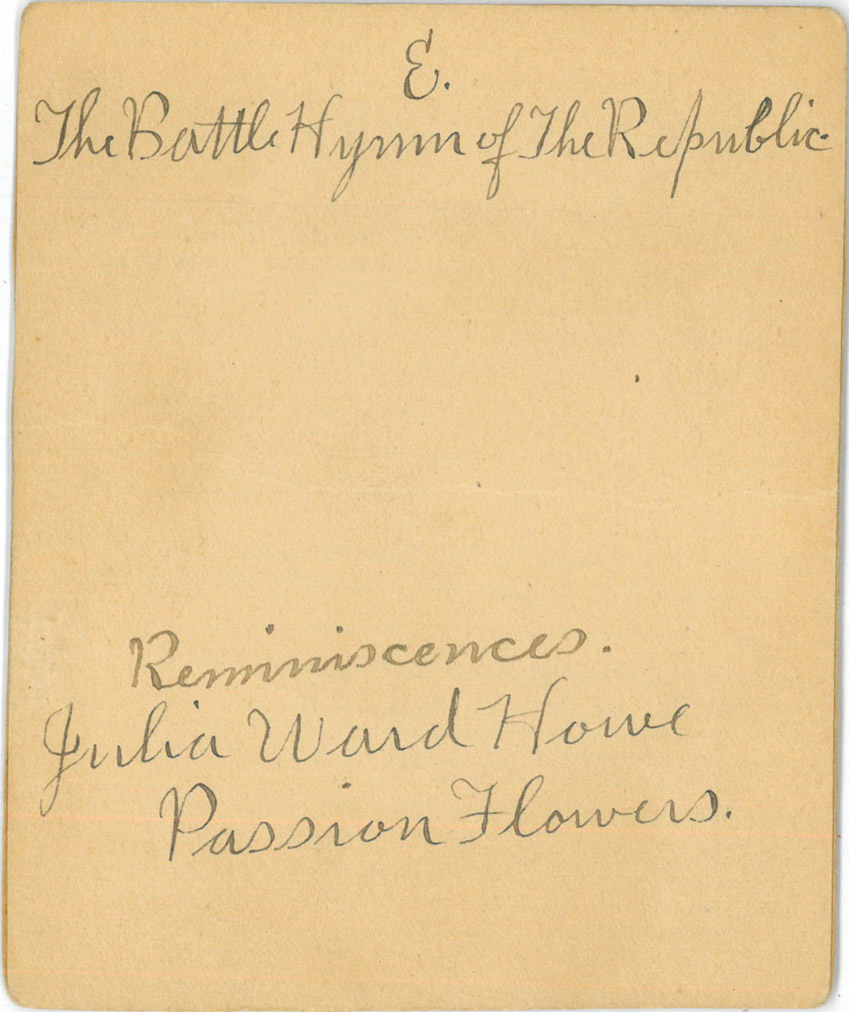 E.
The Battle Hymn of The Republic.
Reminiscences.
Julia Ward Howe
Passion Flowers.